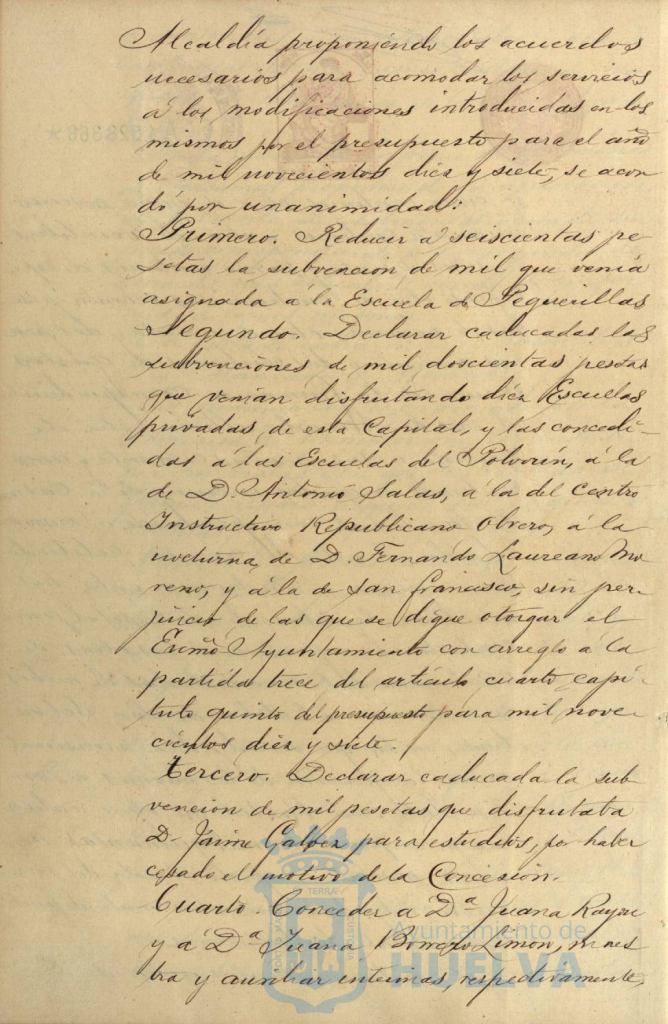 Alcaldía proponiendo los acuerdos
necesarios para acomodar los servicios
á los modificaciones introducidas en los
mismos por el presupuesto para el año
de mil novecientos diez y siete, se acor-
dó por unanimidad:
Primero. Reducir á seiscientas pe-
setas la subvención de mil que venía
asignada á la Escuela de Peguerillas
Segundo. Declarar caducadas las
subvenciones de mil doscientas pesetas
que venían disfrutando diez Escuelas
privadas de esta Capital, y las concedi-
das á las Escuelas del Polvorín, á la
de D. Antonio Salas, á la del Centro
Instructivo Republicano Obrero, á la
nocturna de D. Fernando Laureano Mo-
reno, y á la de San Francisco, sin per-
juicio de las que se digne otorgar el
Excmo Ayuntamiento con arreglo á la
partida trece del artículo cuarto capí-
tulo quinto del presupuesto para mil nove-
cientos diez y siete.
Tercero. Declarar caducada la sub-
vención de mil pesetas que disfrutaba
D. Jaime Galvez para estudios, por haber
cesado el motivo de la Concesión.
Cuarto. Conceder a Dª Juana
y á Dª Juana Borrero Limón, maes-
tra y auxiliar interinas, respectivamente,
Ayuntamiento de
HUELVA